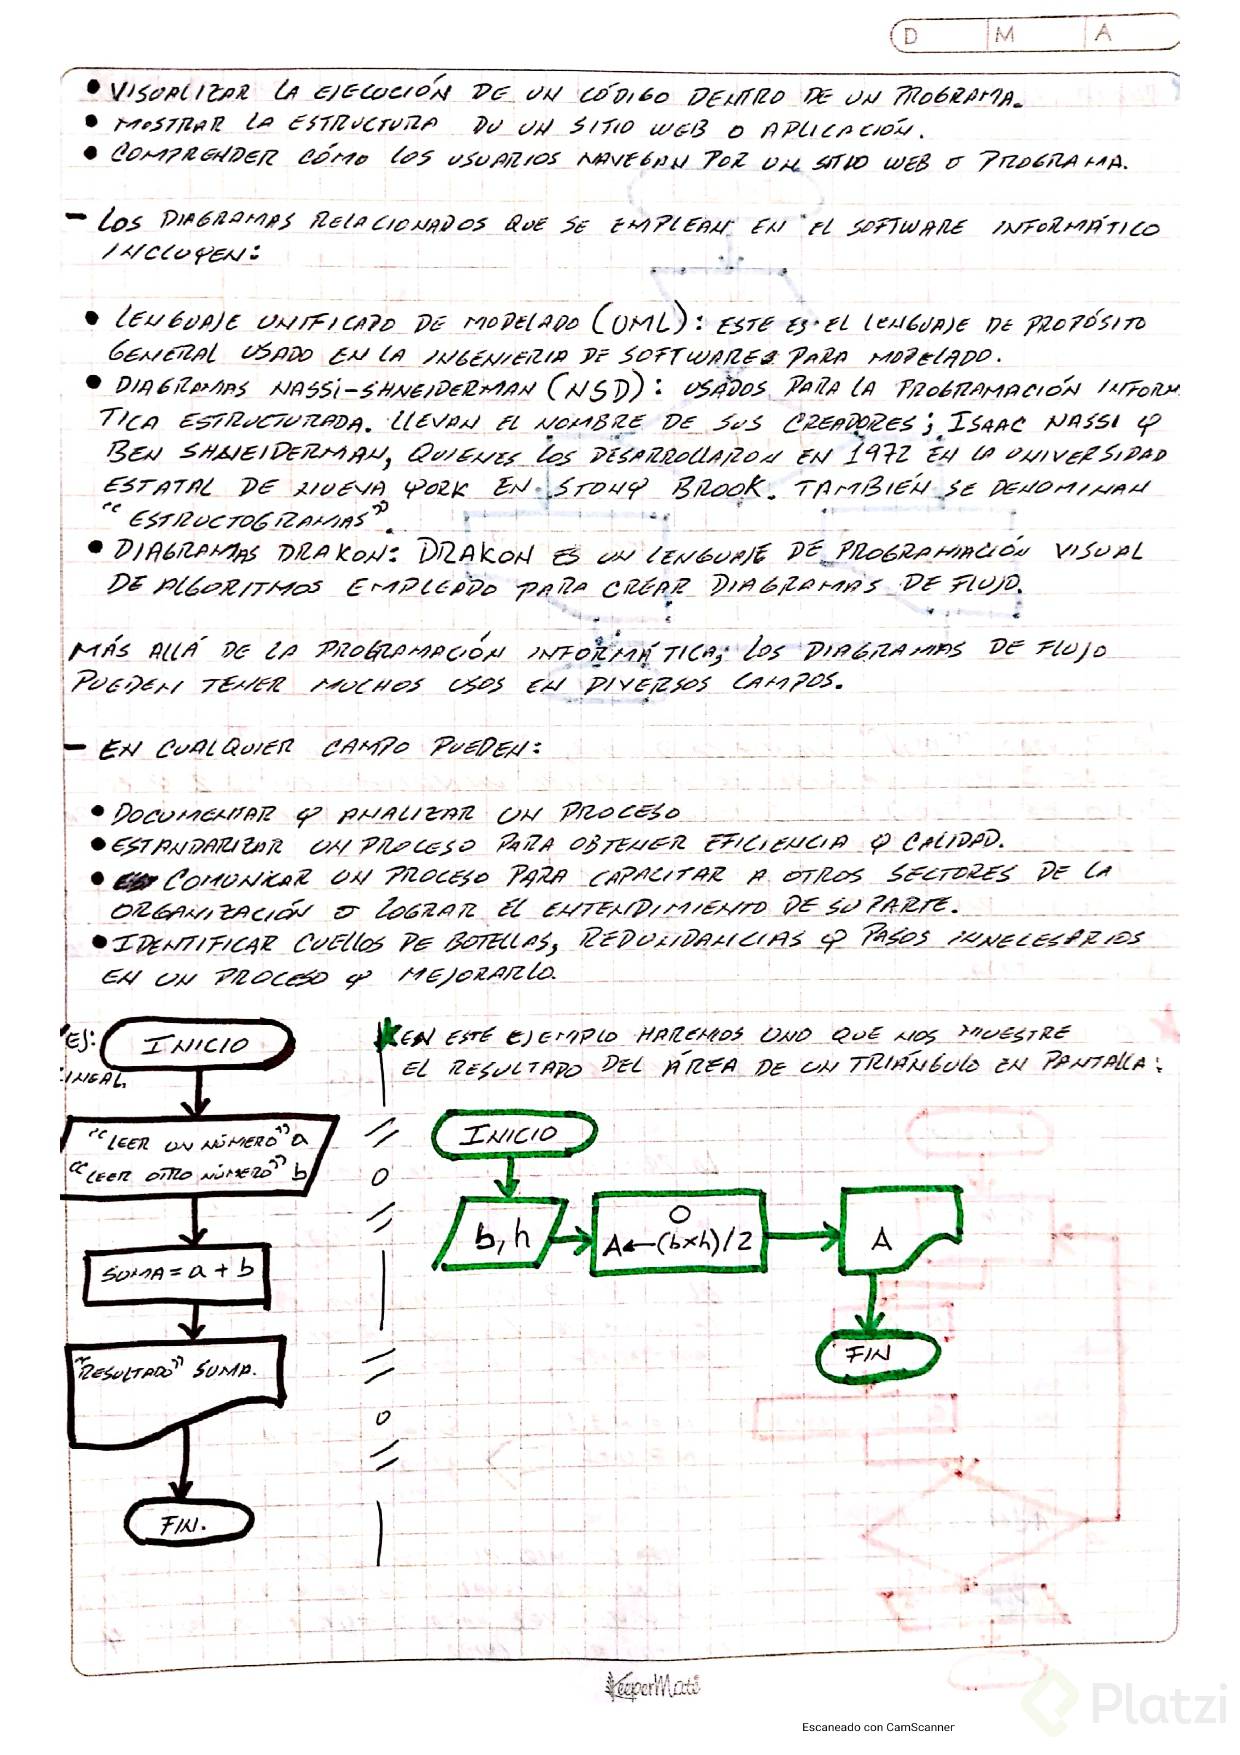 D M A
• VISUALIZAR LA EJECUCIÓN DE UN CÓDIGO DENTRO DE UN PROGRAMA.
• MOSTRAR LA ESTRUCTURA DU UN SITIO WEB O APLICACIÓN.
• COMPRENDER CÓMO LOS USUARIOS NAVEGAN POR UN SITIO WEB O PROGRAMA.
- LOS DIAGRAMAS RELACIONADOS QUE SE EMPLEAN EN EL SOFTWARE INFORMÁTICO
INCLUYEN:
• LENGUAJE UNIFICADO DE MODELADO (UML): ESTE ES EL LENGUAJE DE PROPÓSITO
GENERAL USADO EN LA INGENIERIA DE SOFTWARES PARA MODELADO.
• DIAGRAMAS NASSI-SHNEIDERMAN (NSD): USADOS PARA LA PROGRAMACIÓN INFORM
TICA ESTRUCTURADA. LLEVAN EL NOMBRE DE SUS CREADORES; ISAAC NASSI Y
BEN SHNEIDERMAN, QUIENES LOS DESARROLLARON EN 1972 EN LA UNIVERSIDAD
ESTATAL DE NUEVA YORK EN STONY BROOK. TAMBIÉN SE DENOMINAN
"ESTRUCTOGRAMAS".
• DIAGRAMAS DRAKON: DRAKON ES UN LENGUAJE DE PROGRAMACIÓN VISUAL
DE ALGORITMOS EMPLEADO PARA CREAR DIAGRAMAS DE FLUJO.
MÁS ALLÁ DE LA PROGRAMACIÓN INFORMÁTICA; LOS DIAGRAMAS DE FLUJO
PUEDEN TENER MUCHOS USOS EN DIVERSOS CAMPOS.
- EN CUALQUIER CAMPO PUEDEN:
• DOCUMENTAR Y ANALIZAR UN PROCESO
• ESTANDARIZAR UN PROCESO PARA OBTENER EFICIENCIA Y CALIDAD.
• COMUNICAR UN PROCESO PARA CAPACITAR A OTROS SECTORES DE LA
ORGANIZACIÓN O LOGRAR EL ENTENDIMIENTO DE SU PARTE.
• IDENTIFICAR CUELLOS DE BOTELLAS, REDUNDANCIAS Y PASOS INNECESARIOS
EN UN PROCESO Y MEJORARLO.
EJ:
LINEAL.
INICIO
"LEER UN NÚMERO" a
"LEER OTRO NÚMERO" b
SUMA = a + b
"RESULTADO" SUMA.
FIN.
EN ESTE EJEMPLO HAREMOS UNO QUE NOS MUESTRE
EL RESULTADO DEL ÁREA DE UN TRIÁNGULO EN PANTALLA:
INICIO
b, h
A←(b×h)/2
A
FIN
KeeperMate
Platzi
Escaneado con CamScanner